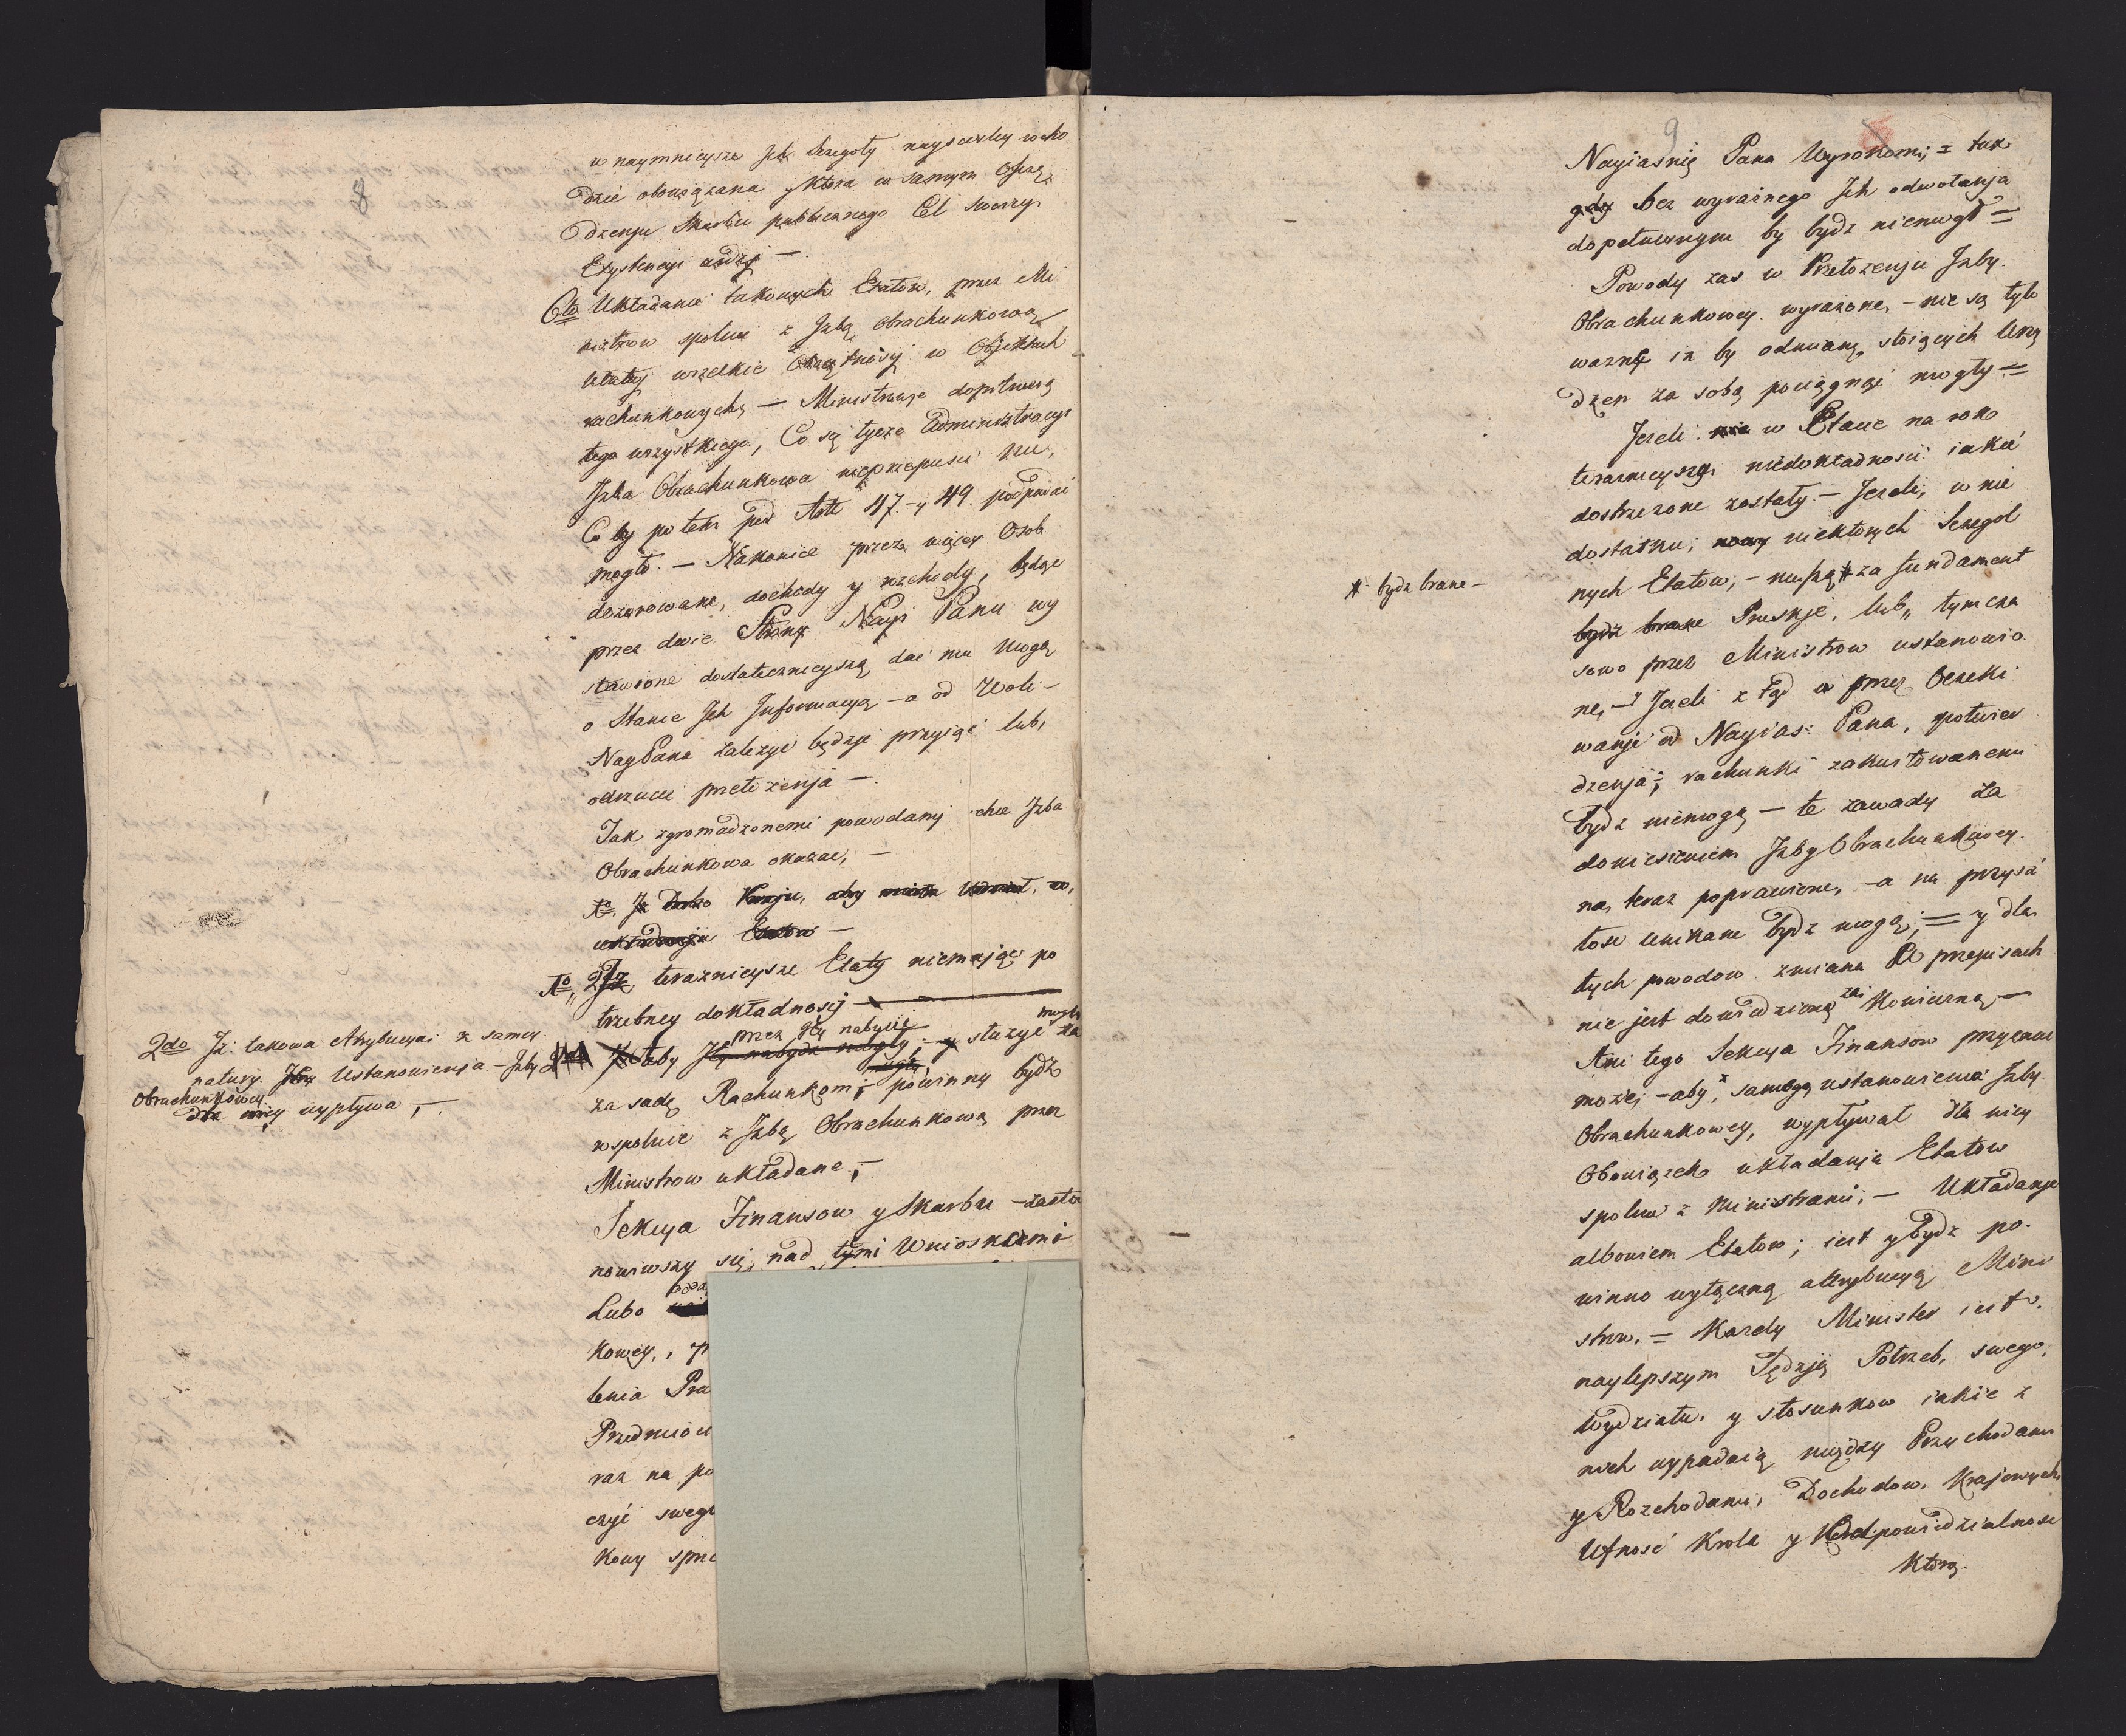 8
w naymnieysze Jch szegoły nayscisley wcho
dzić obowiązana y ktora w samym
dzenju Skarbu publicznego Cel swoczy
Exystencyi
6to Układanie takowych Etatow, przez Mi
nistrow spolnie z Jzbą Obrachunkową
ułatwj wszelkie w Objektach
rachunkowych, — Ministrowje dopilnują
tego wszystkiego, Co się tycze Administracyi
Jzba Obrachunkowa nieprzepusci nic,
Co by potem pod Arti 47 - y 49. podpadać
mogło. — Nakoniec przez więcey Osob
dozorowane, dochody y rozchody, będąc
przez dwie Strony Nayj Panu wy
stawione dostatecznieyszą dać mu mogą
o Stanie Jch Jnformacyą — a od Woli —
Nay Pana zależyć będzje przyiąć lub,
odrzucić przełożenja —.
Tak zgromadzonemi powodamj chce Jzba
Obrachunkowa okazać, —
układanja Etatow —
1o, Jz teraznieysze Etaty niemając po
trzebney dokładnosij —
przez Jey nabycie mogły
aby służyć za
zasadę Rachunkom; powinny bydź
wspolnie z Jzbą Obrachunkową przez
Ministrow układane, —
Sekcya Finansow y Skarbu — zasta
nowiwszy się, nad tymi Wnioskami
Lubo
kowey, ,
lenia
Przedmiow
raz na po
czyć swego
kowy
2do Jż: takowa Atrybucyai z samey
natury. Ustanowienja — Jzby
Obrachunkowey
wypływa, —.
9
Nayiasnię Pana Wyrokomi; = tak
gdy bez wyraźnego Jch odwołanja
dopełnionym by bydz niemogł =
Powody zas w Przełożenju Jzby.
Obrachunkowey wyrażone, — nie są tyle
ważne iż by odmianę, stoiących Urzą
dzeń za sobą pociągnąć mogły =
Jezeli w Etacie na rok
teraznieyszy niedokładnosci iakie
dostrzeżone zostały — Jezeli, w nie
dostatku; niektorych Szegol
nych Etatow, — muszą # za fundament
bydź brane Pruskje, lub,, tymcza
sowo przez Ministrow ustanowio
ne, — Jezeli z tąd przez Oczeki
wanje od Nayias: Pana, potwier
dzenja; rachunki zakustowanemi
bydz niemogą — te zawady za
doniesieniem Jzby Obrachunkowey.
na, teraz poprawione, — a na przysz
łosc unikane bydz mogą; = y dla
tych powodow zmiana w przepisach
nie jest dowiedzioną za Konieczną —
Ani tego Sekcya Finansow przyznać
może; — aby, z samego ustanowienia Jzby
Obrachunkowey, wypływał dla niey
Obowiązek układanja Etatow
spolnie z Ministrami; — Układanje
albowiem Etatow; iest y bydz po.
winno wyłączną attrybucyą Mini
strow. = Kazdy Minister iest.
naylepszym Sędzją Potrzeb, swego,
Wydziału. y stosunkow iakie z
nich wypadaią między Przychodami
y Rozchodami, Dochodow. Krajowych
Ufnosć Krola y Odpowiedzialnosc
Ktorą.
#. bydz brane —